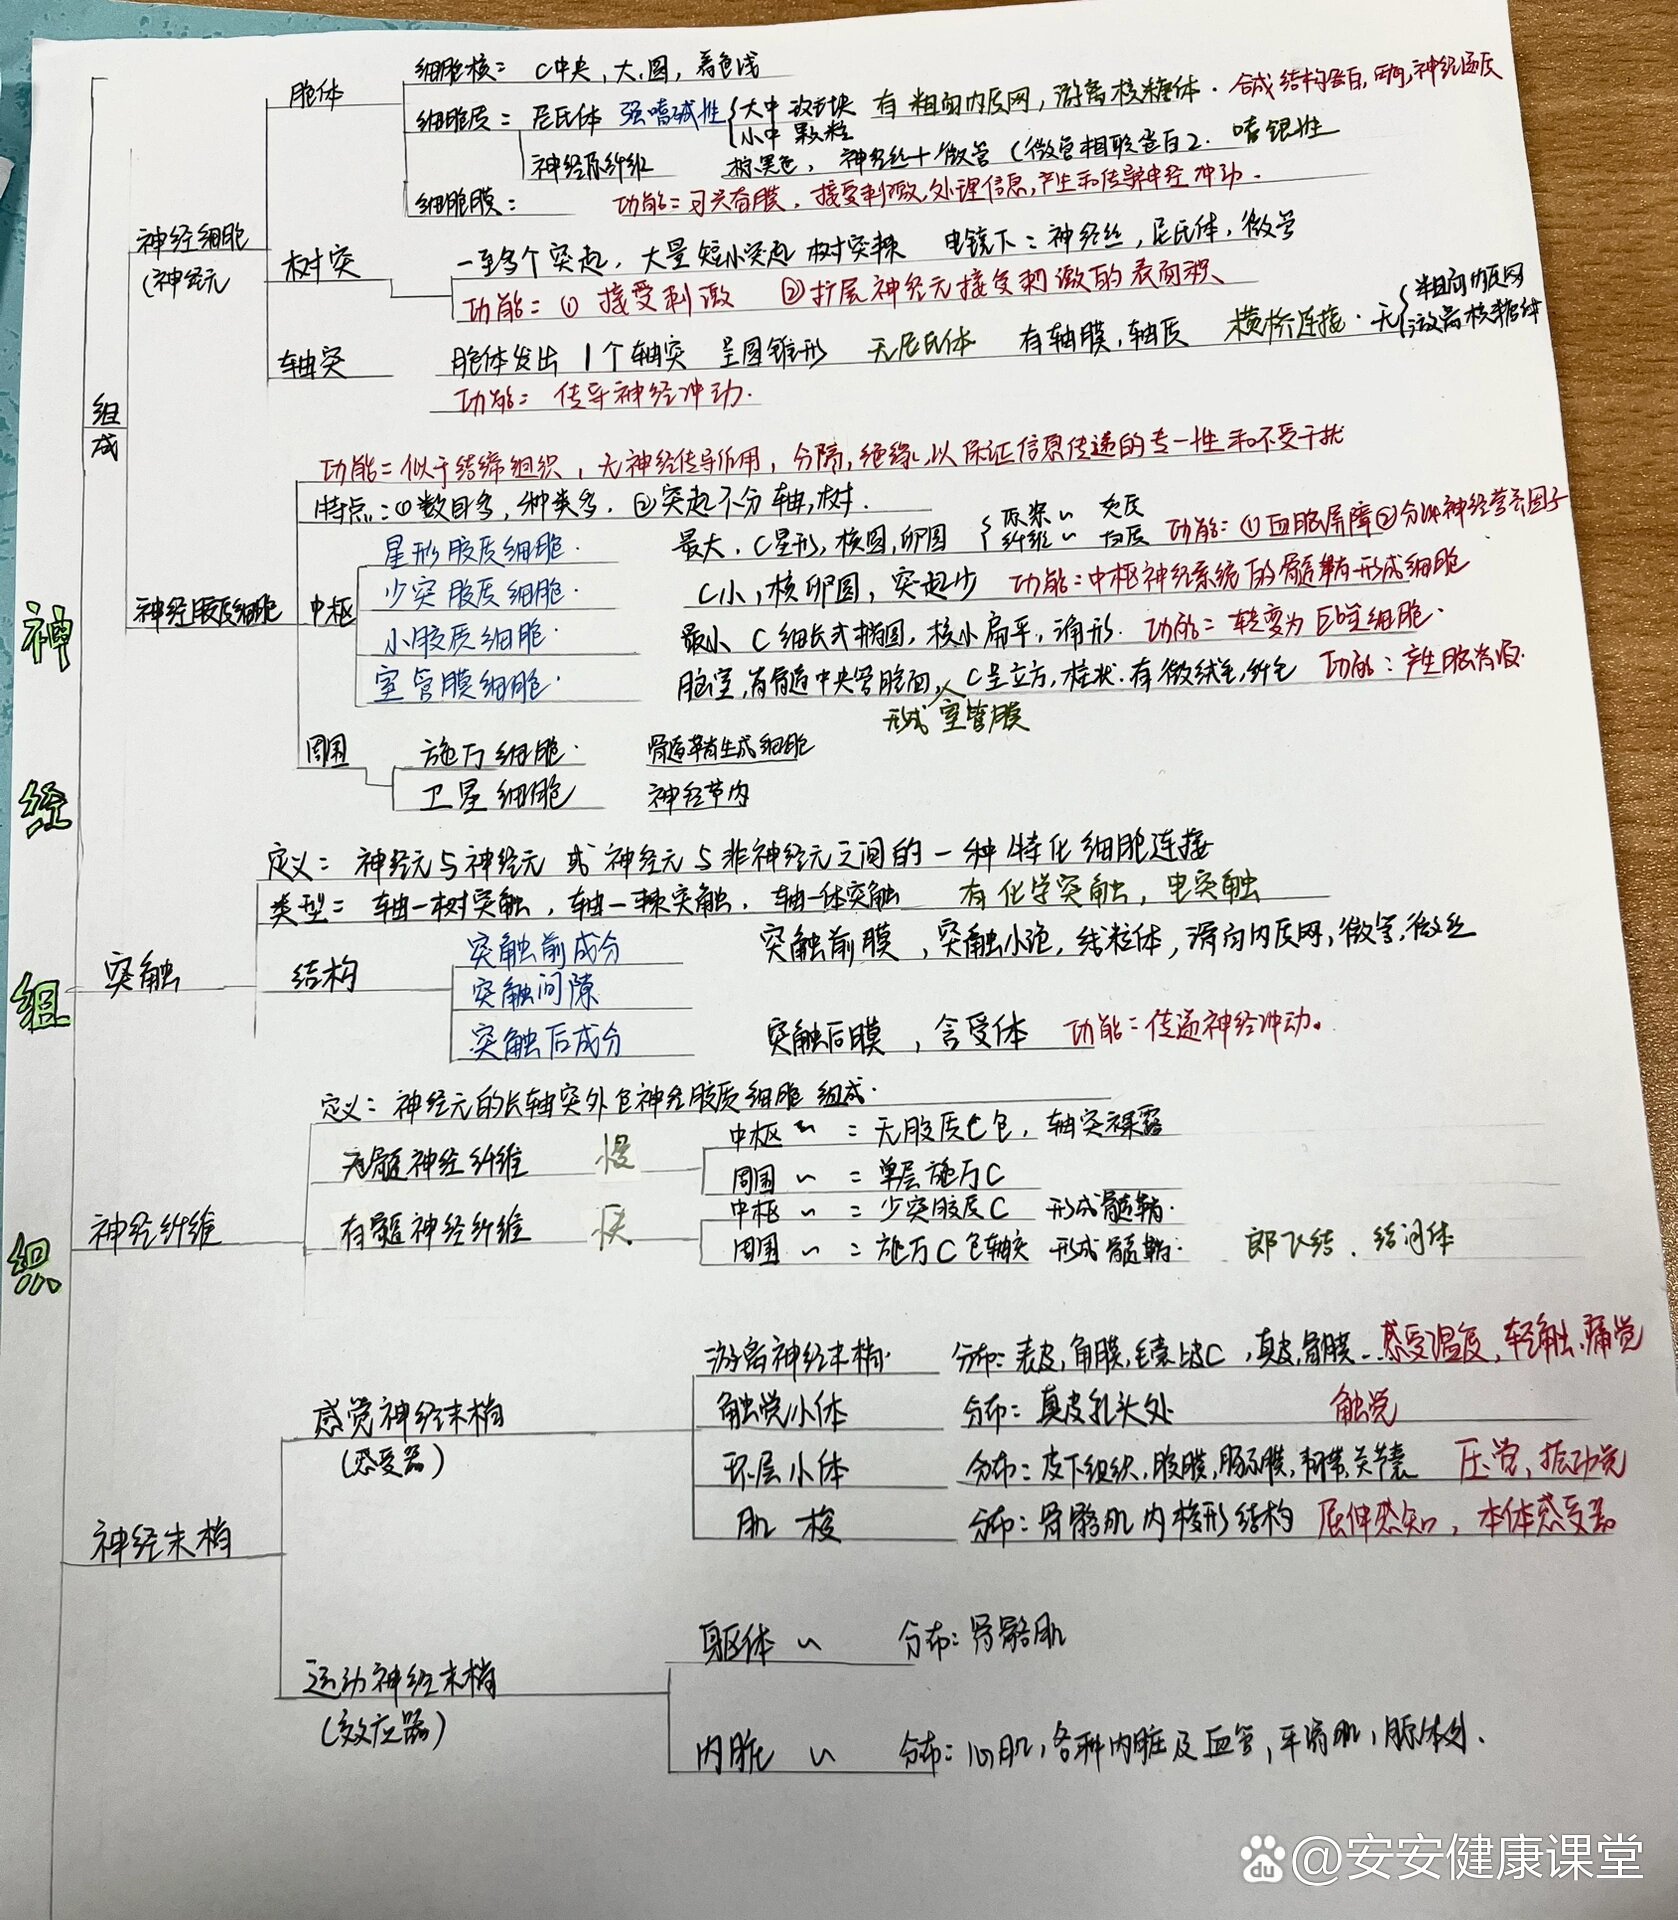 神经组织
组成
神经细胞
(神经元
胞体
细胞核: C中央,大,圆,着色浅
细胞质: 尼氏体 强嗜碱性 {大中 块 有粗面内质网,游离核糖体. 合成结构蛋白,酶,神经递质
小中 颗粒
神经原纤维 棕黑色, 神经丝+微管(微管相联蛋白2. 嗜银性
细胞膜: 功能:可兴奋膜,接受刺激,处理信息,产生和传导神经冲动.
树突 一至多个突起,大量短小突起 树突棘 电镜下:神经丝,尼氏体,微管
功能:①接受刺激 ②扩展神经元接受刺激的表面积、
轴突 胞体发出 1个轴突 呈圆锥形 无尼氏体 有轴膜,轴质 横桥连接.无{粗面内质网
游离核糖体
功能: 传导神经冲动.
神经胶质细胞
功能:似于结缔组织,无神经传导作用,分隔,绝缘,以保证信息传递的专一性和不受干扰
特点:①数目多,种类多. ②突起不分轴,树.
中枢
星形胶质细胞. 最大. C星形,核圆,卵圆 {原浆~ 灰质 功能:①血脑屏障②分泌神经营养因子
纤维~ 白质
少突胶质细胞. C小,核卵圆,突起少 功能:中枢神经系统的髓鞘形成细胞
小胶质细胞. 最小 C细长或椭圆,核小扁平,三角形. 功能:转变为巨噬细胞.
室管膜细胞. 脑室,脊髓中央管腔面,C呈立方,柱状.有微绒毛,纤毛 功能:产生脑脊液.
形成室管膜
周围 施万细胞. 髓鞘生成细胞
卫星细胞 神经节内
突触
定义: 神经元与神经元 或 神经元与非神经元之间的一种特化细胞连接
类型: 轴-树突触,轴-棘突触.轴-体突触 有化学突触,电突触
结构
突触前成分 突触前膜,突触小泡,线粒体,滑面内质网,微管,微丝
突触间隙
突触后成分 突触后膜,含受体 功能:传递神经冲动。
神经纤维
定义: 神经元的长轴突外包神经胶质细胞 组成.
无髓神经纤维 慢 中枢~:无胶质C包,轴突裸露
周围~:单层施万C
有髓神经纤维 快 中枢~:少突胶质C 形成髓鞘.
周围~:施万C包轴突 形成髓鞘. 郎飞结、结间体
神经末梢
感觉神经末梢
(感受器)
游离神经末梢. 分布:表皮,角膜,毛囊上皮C,真皮,骨膜 感受温度,轻触,痛觉
触觉小体 分布:真皮乳头处 触觉
环层小体 分布:皮下组织,腹膜,肠系膜,韧带,关节囊 压觉,振动觉
肌梭 分布:骨骼肌内梭形结构 屈伸感知,本体感受器
运动神经末梢
(效应器)
躯体~ 分布:骨骼肌
内脏~ 分布:心肌,各种内脏及血管,平滑肌,腺体处.
du @安安健康课堂